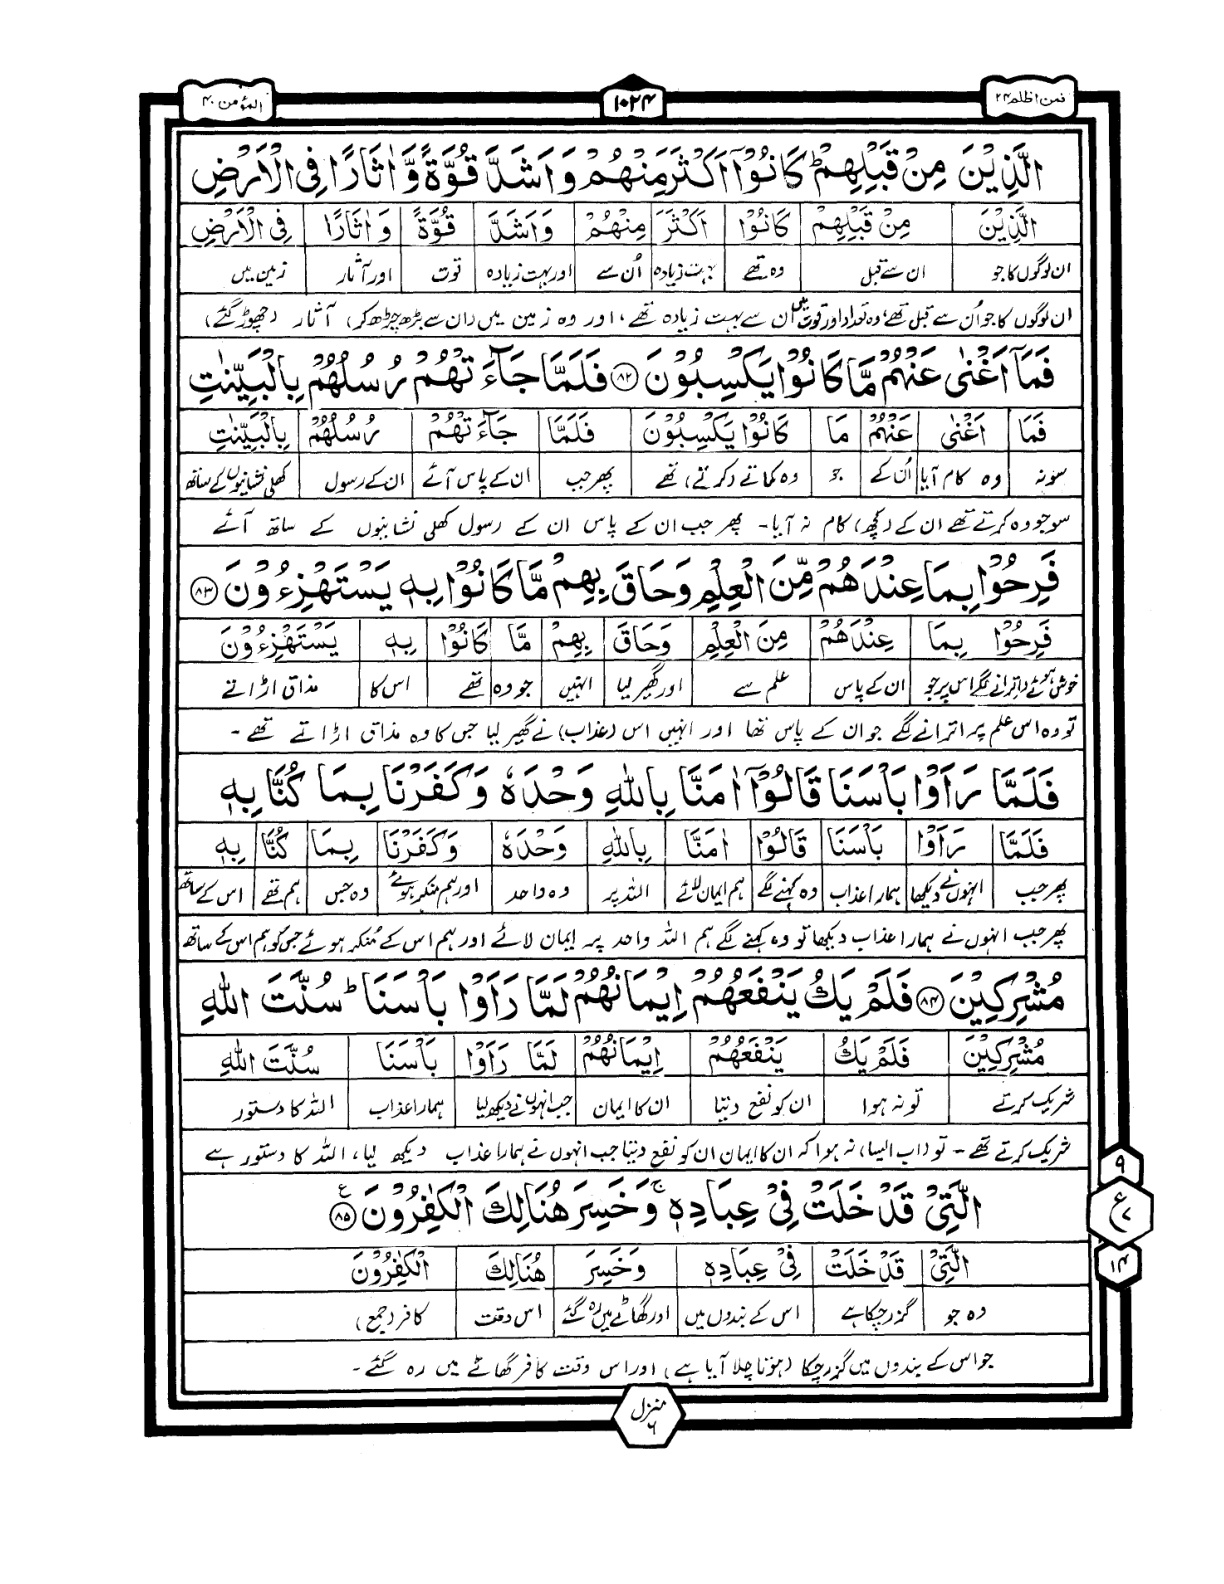 فمن اظلم ۲۴
۱۰۲۴
المؤمن ۴۰
الَّذِیْنَ مِنْ قَبْلِهِمْ ؕ كَانُوْۤا اَكْثَرَ مِنْهُمْ وَ اَشَدَّ قُوَّةً وَّ اٰثَارًا فِی الْاَرْضِ
الَّذِیْنَ مِنْ قَبْلِهِمْ كَانُوْا اَكْثَرَ مِنْهُمْ وَاَشَدَّ قُوَّةً وَ اٰثَارًا فِی الْاَرْضِ
ان لوگوں کا جو ان سے قبل وہ تھے بہت زیادہ اُن سے اور بہت زیادہ قوت اور آثار زمین میں
ان لوگوں کا جو اُن سے قبل تھے، وہ تعداد اور قوت میں ان سے بہت زیادہ تھے، اور وہ زمین میں (ان سے بڑھ چڑھ کر) آثار (چھوڑ گئے)
فَمَاۤ اَغْنٰى عَنْهُمْ مَّا كَانُوْا یَكْسِبُوْنَ ۸۲ فَلَمَّا جَآءَتْهُمْ رُسُلُهُمْ بِالْبَیِّنٰتِ
فَمَا اَغْنٰى عَنْهُمْ مَا كَانُوْا یَكْسِبُوْنَ فَلَمَّا جَآءَتْهُمْ رُسُلُهُمْ بِالْبَیِّنٰتِ
سو نہ وہ کام آیا اُن کے جو وہ کماتے (کرتے) تھے پھر جب ان کے پاس آئے ان کے رسول کھلی نشانیوں کے ساتھ
سو جو وہ کرتے تھے ان کے (کچھ) کام نہ آیا۔ پھر جب ان کے پاس ان کے رسول کھلی نشانیوں کے ساتھ آئے
فَرِحُوْا بِمَا عِنْدَهُمْ مِّنَ الْعِلْمِ وَ حَاقَ بِهِمْ مَّا كَانُوْا بِهٖ یَسْتَهْزِءُوْنَ ۸۳
فَرِحُوْا بِمَا عِنْدَهُمْ مِنَ الْعِلْمِ وَحَاقَ بِهِمْ مَّا كَانُوْا بِهٖ یَسْتَهْزِءُوْنَ
خوش ہوئے (اترانے لگے) اس پر جو ان کے پاس علم سے اور گھیر لیا انہیں جو وہ تھے اس کا مذاق اڑاتے
تو وہ اس علم پر اترانے لگے جو ان کے پاس تھا اور انہیں اس (عذاب) نے گھیر لیا جس کا وہ مذاق اڑاتے تھے۔
فَلَمَّا رَاَوْا بَاْسَنَا قَالُوْۤا اٰمَنَّا بِاللّٰهِ وَحْدَهٗ وَ كَفَرْنَا بِمَا كُنَّا بِهٖ
فَلَمَّا رَاَوْا بَاْسَنَا قَالُوْۤا اٰمَنَّا بِاللّٰهِ وَحْدَهٗ وَكَفَرْنَا بِمَا كُنَّا بِهٖ
پھر جب انہوں نے دیکھا ہمارا عذاب وہ کہنے لگے ہم ایمان لائے اللہ پر وہ واحد اور ہم منکر ہوئے وہ جس ہم تھے اس کے ساتھ
پھر جب انہوں نے ہمارا عذاب دیکھا تو وہ کہنے لگے ہم اللہ واحد پر ایمان لائے اور ہم اس کے منکر ہوئے جس کو ہم اس کے ساتھ
مُشْرِكِیْنَ ۸۴ فَلَمْ یَكُ یَنْفَعُهُمْ اِیْمَانُهُمْ لَمَّا رَاَوْا بَاْسَنَا ؕ سُنَّتَ اللّٰهِ
مُشْرِكِیْنَ فَلَمْ یَكُ یَنْفَعُهُمْ اِیْمَانُهُمْ لَمَّا رَاَوْا بَاْسَنَا سُنَّتَ اللّٰهِ
شریک کرتے تو نہ ہوا ان کو نفع دیتا ان کا ایمان جب انہوں نے دیکھ لیا ہمارا عذاب اللہ کا دستور
شریک کرتے تھے۔ تو (اب ایسا) نہ ہوا کہ ان کا ایمان ان کو نفع دیتا جب انہوں نے ہمارا عذاب دیکھ لیا، اللہ کا دستور ہے
الَّتِیْ قَدْ خَلَتْ فِیْ عِبَادِهٖ ۚ وَ خَسِرَ هُنَالِكَ الْكٰفِرُوْنَ ۸۵ ع
الَّتِیْ قَدْ خَلَتْ فِیْ عِبَادِهٖ وَخَسِرَ هُنَالِكَ الْكٰفِرُوْنَ
وہ جو گزر چکا ہے اس کے بندوں میں اور گھاٹے میں رہ گئے اس وقت کافر (جمع)
جو اس کے بندوں میں گزر چکا (ہوتا چلا آیا ہے) اور اس وقت کافر گھاٹے میں رہ گئے۔
۹
ع
۱۴
منزل ۶